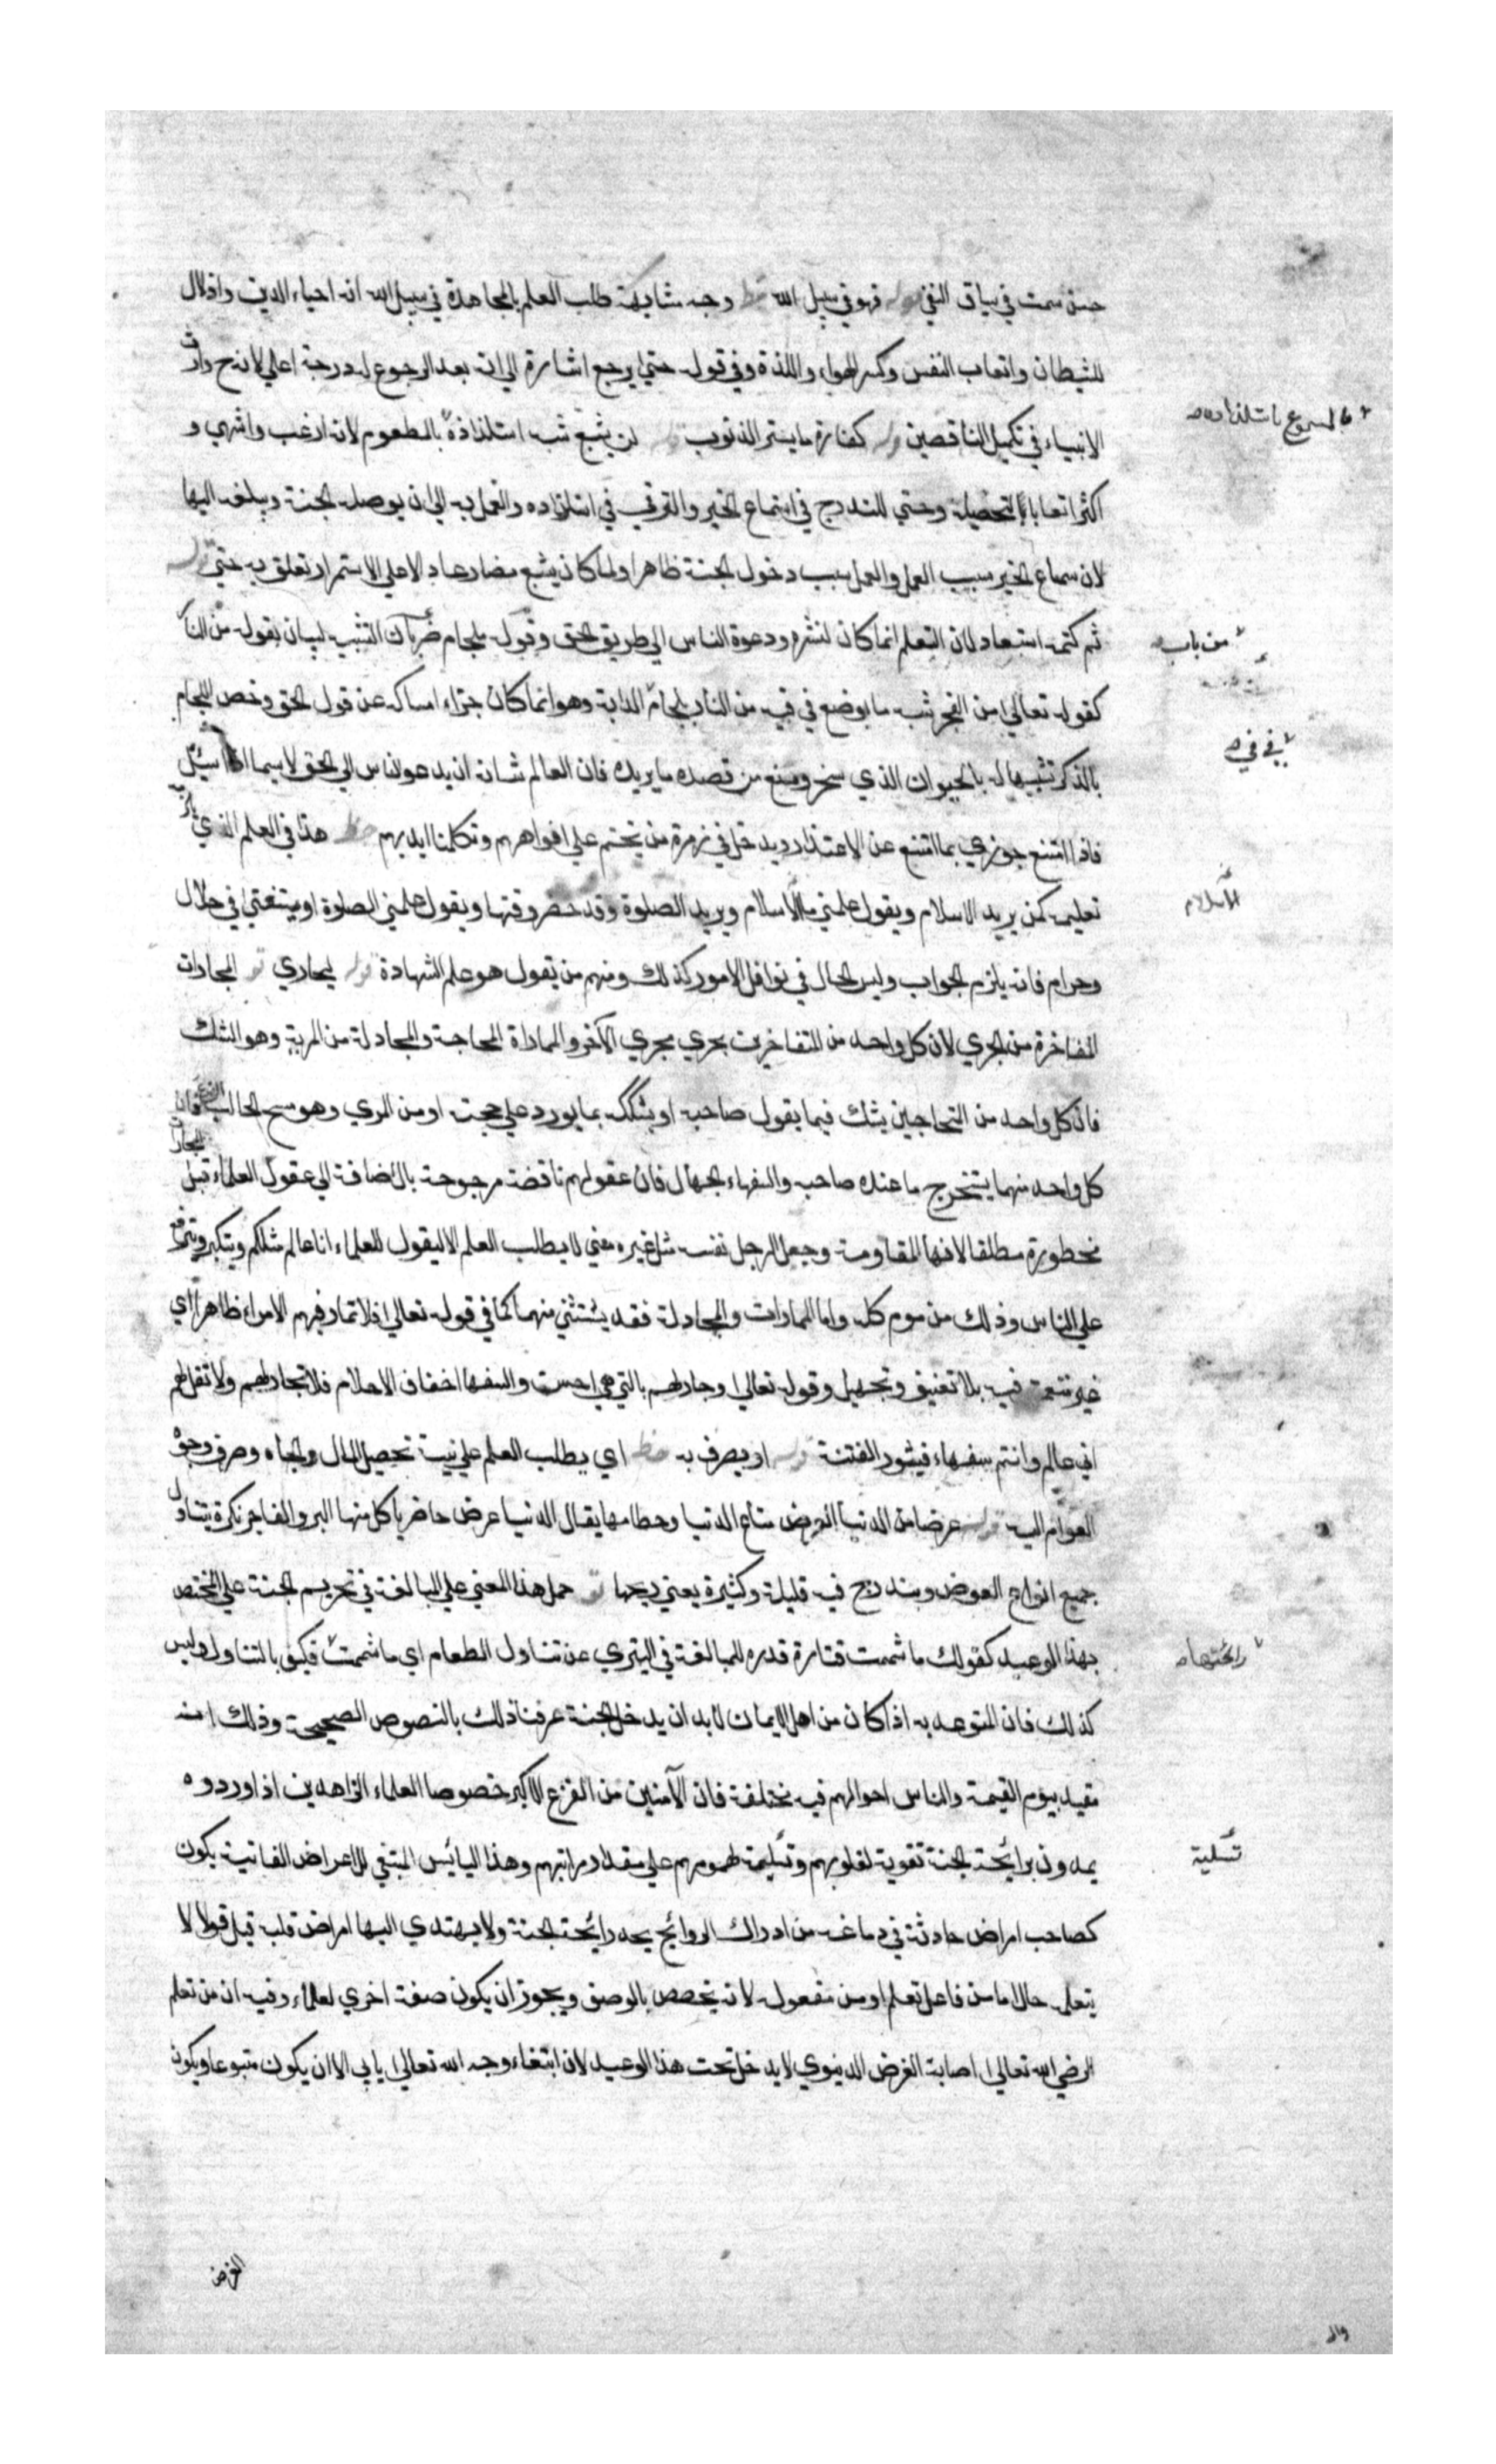 حسن سمت في سياق النفي قوله فهو في سبيل الله خط وجه مشابهة طلب العلم بالمجاهدة في سبيل الله انه احياء الدين واذلال
للشيطان واتعاب النفس وكسر الهواء واللذة وفي قوله حتي يرجع اشارة الي انه بعد الرجوع له درجة اعلي لانه ح وارث
الانبياء في تكميل الناقصين قوله كفارة ما يستر الذنوب لن يشبع شبه استلذاذه بالمطعوم لانه ارغب واشهي و
بالمسموع باستلذاذه
اكثر اتعابا لتحصيله وحتي للتدرج في استماع الخير والترقي في استلذاذه والعمل به الي ان يوصله الجنة ويبلغه اليها
لان سماع الخير سبب العمل والعمل سبب دخول الجنة ظاهرا ولما كان يشبع مضارعا دالا علي الاستمرار تعلق به حتي قوله
ثم كتمه استبعاد لان التعلم انما كان لنشره ودعوة الناس الي طريق الحق وقوله بلجام التشبيه لبيان بقوله من النار
من باب
كقوله تعالي من الفجر شبه ما يوضع في فيه من النار بلجام الدابة وهو انما كان جزاء امساكه عن قول الحق وخص اللجام
في في
بالذكر تشبيها له بالحيوان الذي سخر ومنع من قصده ما يريده فان العالم شانه ان يدعو الناس الي الحق لاسيما اذا سئل
فاذا امتنع جوزي بما امتنع عن الاعتذار ويدخل في زمرة من يختم علي افواههم وتكلمنا ايديهم خط هذا في العلم الذي يلزمه
تعليمه كمن يريد الاسلام ويقول علمني ما الاسلام ويريد الصلوة وقد حضر وقتها ويقول علمني الصلوة او يستفتي في حلال
الاسلام
وحرام فانه يلزم الجواب وليس الحال في نوافل الامور كذلك ومنهم من يقول هو علم الشهادة قوله ليجاري المجارات
المفاخرة من الجري لان كل واحد من المتفاخرين يجري مجري الآخر والمماراة المحاجة والمجادلة من المرية وهو الشك
فان كل واحد من المتحاجين يشك فيما يقول صاحبه او يشكك بما يورد علي حجته او من المري وهو مسح الحالب الضرع فان
كل واحد منهما يستخرج ما عند صاحبه والسفهاء الجهال فان عقولهم ناقصة مرجوحة بالاضافة الي عقول العلماء قيل المجاراة
محظورة مطلقا لانها المقاومة وجعل الرجل نفسه مثل غيره يعني لا يطلب العلم الا ليقول للعلماء انا عالم مثلكم ويتكبر ويترفع
علي الناس وذلك مذموم كله واما المماراة والمجادلة فقد يستثني منهما كما في قوله تعالي فلا تمار فيهم الا مراء ظاهرا اي
غير متعمق فيه بلا تعنيف وتجهيل وقوله تعالي وجادلهم بالتي هي احسن والسفها اخفاف الاحلام فلا تجادلهم ولا تقل لهم
اني عالم وانتم سفهاء فيثور الفتنة قوله او يصرف به خط اي يطلب العلم علي نية تحصيل المال والجاه وصرف وجوه
العوام اليه قوله عرضا من الدنيا العرض متاع الدنيا وحطامها يقال الدنيا عرض حاضر ياكل منها البر والفاجر نكرة يتناول
جميع انواع العرض ويندرج فيه قليلة وكثيرة يعني ريحها حمل هذا المعني علي المبالغة في تحريم الجنة علي المختص
بهذا الوعيد كقولك ما شممت قتارة قدره للمبالغة في التبري عن تناول الطعام اي ما شممت فكيف بالتناول وليس
رائحتها
كذلك فان المتوعد به اذا كان من اهل الايمان لابد ان يدخل الجنة عرفنا ذلك بالنصوص الصحيحة وذلك انه
مقيد بيوم القيمة والناس احوالهم فيه مختلفة فان الآمنين من الفزع الاكبر خصوصا العلماء الزاهدين اذا اوردوه
يمدون برائحة الجنة تقوية لقلوبهم وتسلية لهمومهم علي مقدار مراتبهم وهذا اليائس المبتغي للاعراض الفانية يكون
تسلية
كصاحب امراض حادثة في دماغه من ادراك الروائح يجد رائحة الجنة ولا يهتدي اليها امراض قلبه قيل قوله لا
يتعلمه حال اما من فاعل تعلم او من مفعوله لانه تخصص بالوصف ويجوز ان يكون صفة اخري لعلماء وفيه ان من تعلم
لرضي الله تعالي اصابة الغرض الدنيوي لا يدخل تحت هذا الوعيد لان ابتغاء وجه الله تعالي يابي الا ان يكون متبوعا ويكون
الغرض